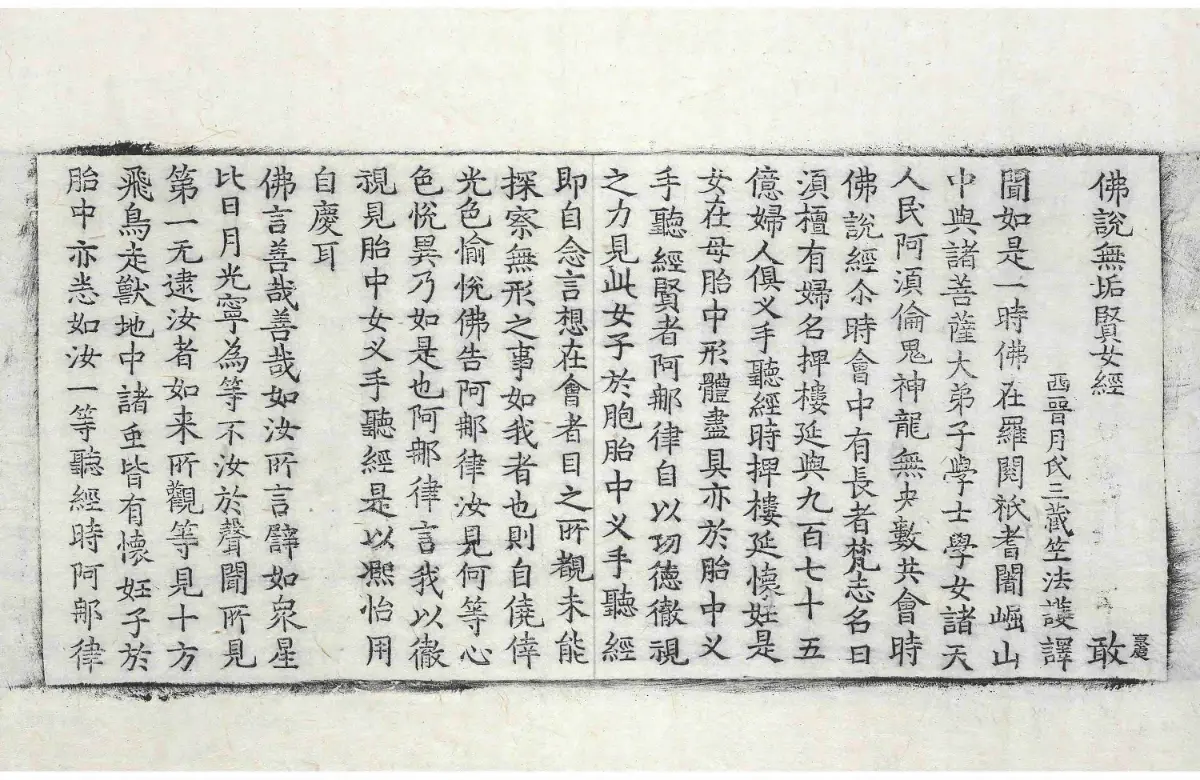 佛說無垢賢女經 敢
西晉月氏三藏竺法護譯
聞如是一時佛在羅閱祇耆闍崛山
中與諸菩薩大弟子學士學女諸天
人民阿湏倫鬼神龍無央數共會時
佛說經尒時會中有長者梵志名曰
湏檀有婦名捭樓延與九百七十五
億婦人俱叉手聽經時捭樓延懷妊是
女在母胎中形體盡具亦於胎中叉
手聽經賢者阿那律自以功德徹視
之力見此女子於胞胎中叉手聽經
即自念言想在會者目之所觀未能
探察無形之事如我者也則自僥倖
光色愉恱佛告阿那律汝見何等心
色恱異乃如是也阿那律言我以徹
視見胎中女叉手聽經是以熈怡用
自慶耳
佛言善哉善哉如汝所言譬如衆星
比日月光寧為等不汝於聲聞所見
第一无逮汝者如来所觀等見十方
飛鳥走獸地中諸虫皆有懷妊子於
胎中亦悉如汝一等聽經時阿那律